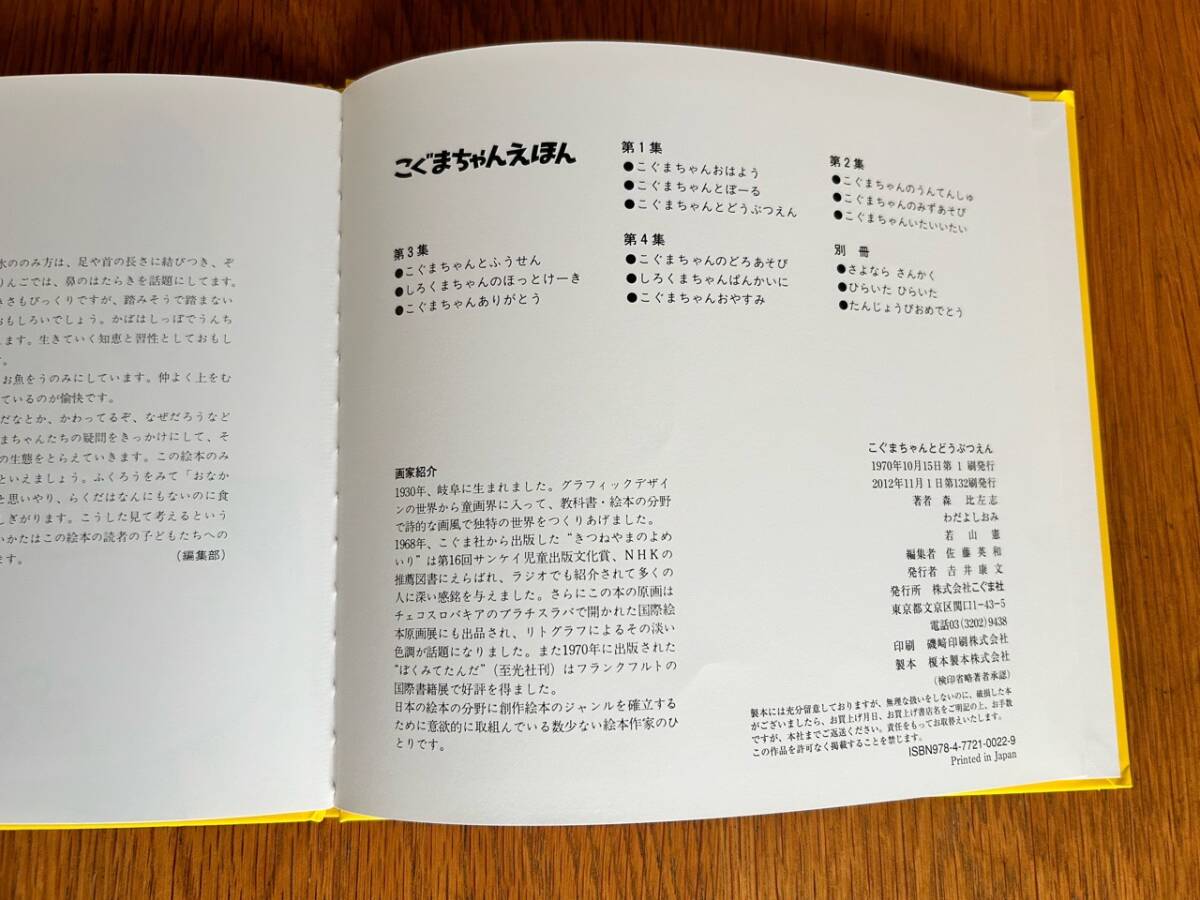 水ののみ方は、足や首の長さに結びつき、ぞ
りんごでは、鼻のはたらきを話題にしてます。
きさもびっくりですが、踏みそうで踏まない
おもしろいでしょう。かばはしっぽでうんち
します。生きていく知恵と習性としておもし
す。
お魚をうのみにしています。仲よく上をむ
ているのが愉快です。
だなとか、かわってるぞ、なぜだろうなど
まちゃんたちの疑問をきっかけにして、そ
の生態をとらえていきます。この絵本のみ
といえましょう。ふくろうをみて「おなか
と思いやり、らくだはなんにもないのに食
しぎがります。こうした見て考えるという
いかたはこの絵本の読者の子どもたちへの
ます。
（編集部）
こぐまちゃんえほん
第1集
●こぐまちゃんおはよう
●こぐまちゃんとぼーる
●こぐまちゃんとどうぶつえん
第2集
●こぐまちゃんのうんてんしゅ
●こぐまちゃんのみずあそび
●こぐまちゃんいたいいたい
第3集
●こぐまちゃんとふうせん
●しろくまちゃんのほっとけーき
●こぐまちゃんありがとう
第4集
●こぐまちゃんのどろあそび
●しろくまちゃんぱんかいに
●こぐまちゃんおやすみ
別 冊
●さよなら さんかく
●ひらいた ひらいた
●たんじょうびおめでとう
画家紹介
1930年、岐阜に生まれました。グラフィックデザイ
ンの世界から童画界に入って、教科書・絵本の分野
で詩的な画風で独特の世界をつくりあげました。
1968年、こぐま社から出版した“きつねやまのよめ
いり”は第16回サンケイ児童出版文化賞、NHKの
推薦図書にえらばれ、ラジオでも紹介されて多くの
人に深い感銘を与えました。さらにこの本の原画は
チェコスロバキアのブラチスラバで開かれた国際絵
本原画展にも出品され、リトグラフによるその淡い
色調が話題になりました。また1970年に出版された
“ぼくみてたんだ”（至光社刊）はフランクフルトの
国際書籍展で好評を得ました。
日本の絵本の分野に創作絵本のジャンルを確立する
ために意欲的に取組んでいる数少ない絵本作家のひ
とりです。
こぐまちゃんとどうぶつえん
1970年10月15日第1刷発行
2012年11月1日第132刷発行
著者 森 比左志
わだよしおみ
若山 憲
編集者 佐藤英和
発行者 吉井康文
発行所 株式会社こぐま社
東京都文京区関口1-43-5
電話03(3202)9438
印刷 磯﨑印刷株式会社
製本 榎本製本株式会社
（検印省略著者承認）
製本には充分留意しておりますが、無理な扱いをしないのに、破損した本
がございましたら、お買上げ月日、お買上げ書店名をご明記の上、お手数
ですが、本社までご返送ください。責任をもってお取替えいたします。
この作品を許可なく掲載することを禁じます。
ISBN978-4-7721-0022-9
Printed in Japan